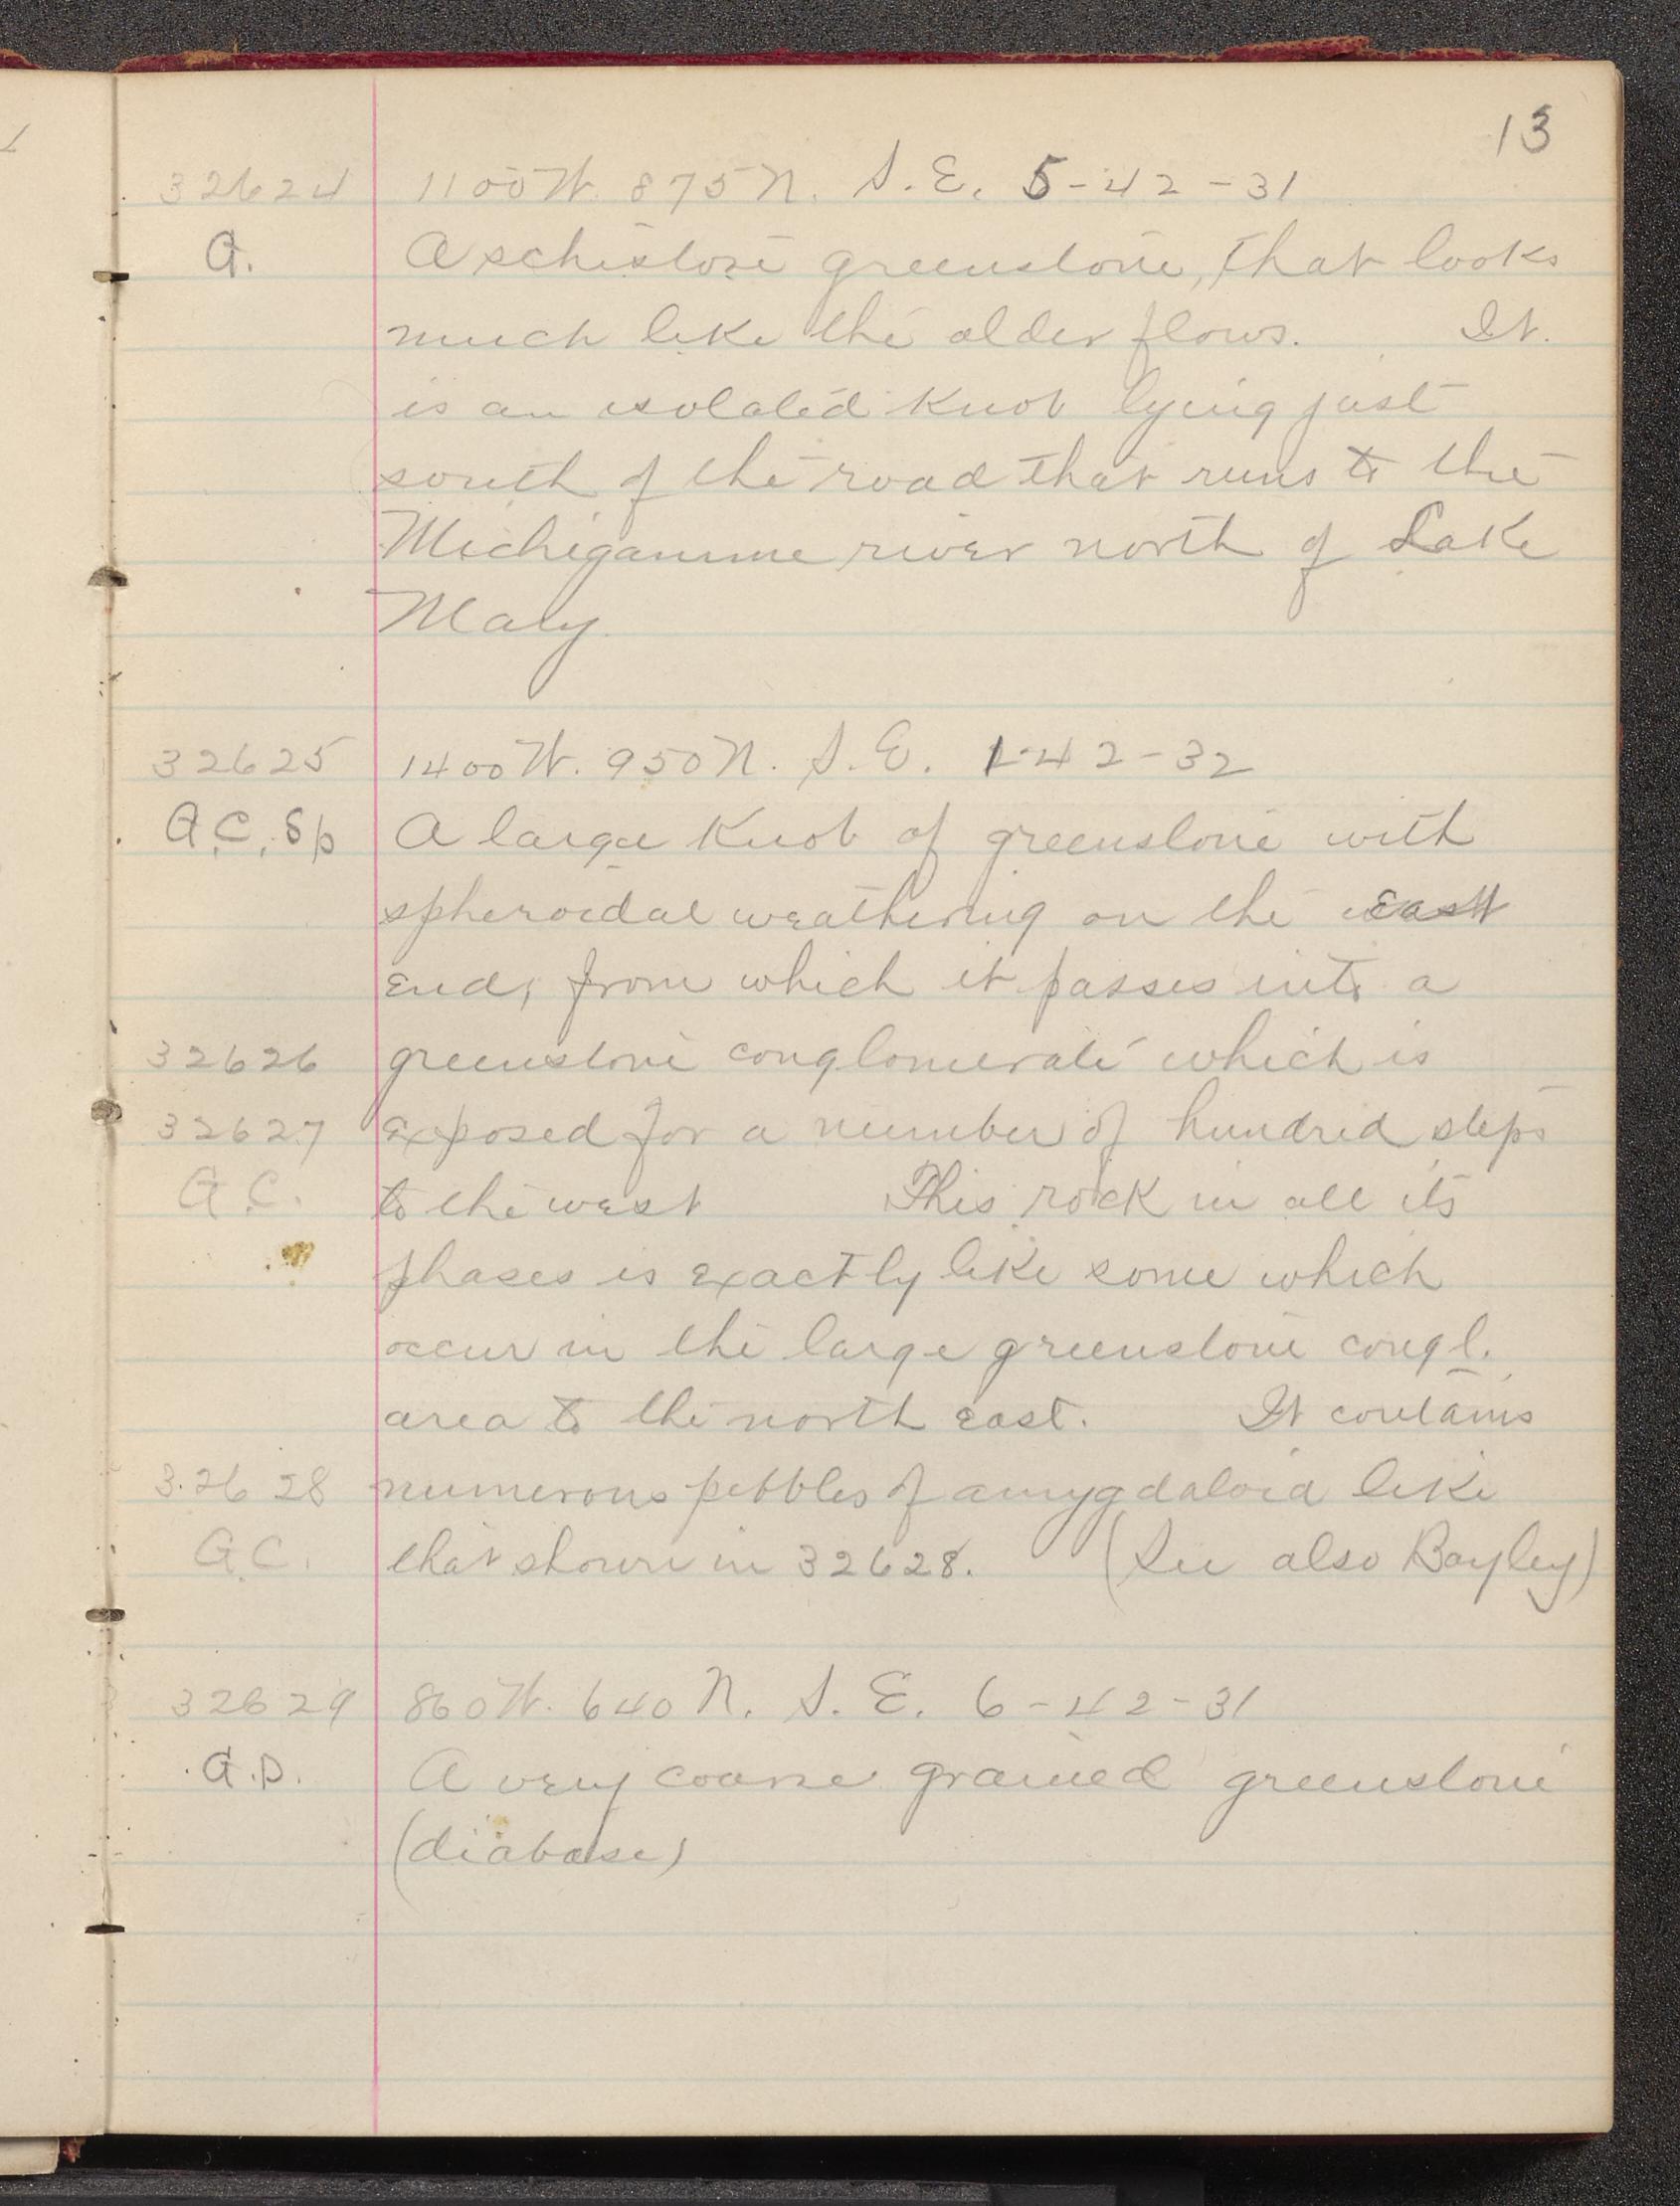 13
32624 1100 W. 875 N. S. E. 5-42-31
G. A schistose greenstone, that looks
much like the older flows. It
is an isolated knob lying just
south of the road that runs to the
Michigamme river north of Lake
Mary.
32625 1400 W. 950 N. S. E. 1-42-32
G.C. Sp A large knob of greenstone with
spheroidal weathering on the east
end, from which it passes into a
32626 greenstone conglomerate which is
32627 exposed for a number of hundred steps
G.C. to the west This rock in all its
phases is exactly like some which
occur in the large greenstone congl.
area to the north east. It contains
32628 numerous pebbles of amygdaloid like
G.C. that shown in 32628. (See also Bayley)
32629 860 W. 640 N. S. E. 6-42-31
G.D. A very coarse grained greenstone
(diabase)